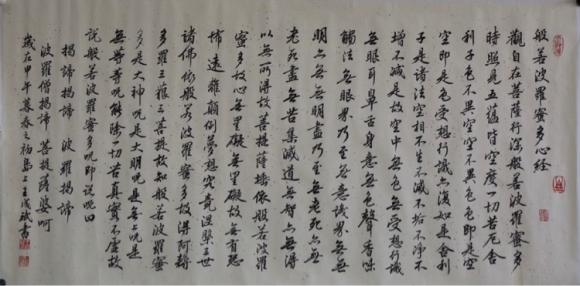 般若波羅蜜多心經
觀自在菩薩行深般若波羅蜜多
時照見五蘊皆空度一切苦厄舍
利子色不異空空不異色色即是空
空即是色受想行識亦復如是舍利
子是諸法空相不生不滅不垢不淨不
增不減是故空中無色無受想行識
無眼耳鼻舌身意無色聲香味
觸法無眼界乃至無意識界無無
明亦無無明盡乃至無老死亦無
老死盡無苦集滅道無智亦無得
以無所得故菩提薩埵依般若波羅
蜜多故心無罣礙無罣礙故無有恐
怖遠離顛倒夢想究竟涅槃三世
諸佛依般若波羅蜜多故得阿耨
多羅三藐三菩提故知般若波羅蜜
多是大神咒是大明咒是無上咒是
無等等咒能除一切苦真實不虛故
說般若波羅蜜多咒即說咒曰
揭諦揭諦 波羅揭諦
波羅僧揭諦 菩提薩婆呵
歲在甲午暮春之初 王成 書